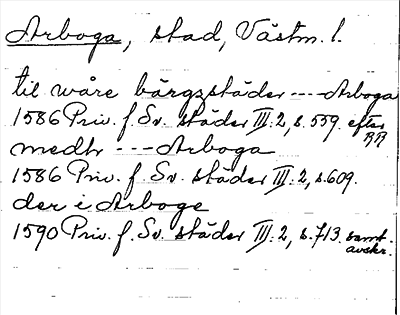 Arboga, stad, Västm. l.
til wåre bärgzstäder ---- Arboga
1586 Priv. f. Sv. städer III:2, s. 559. efter RR
medhr --- Arboga
1586 Priv. f. Sv. städer III:2, s. 609.
der i Arboge
1590 Priv. f. Sv. städer III:2, s. 713. samt. avskr.